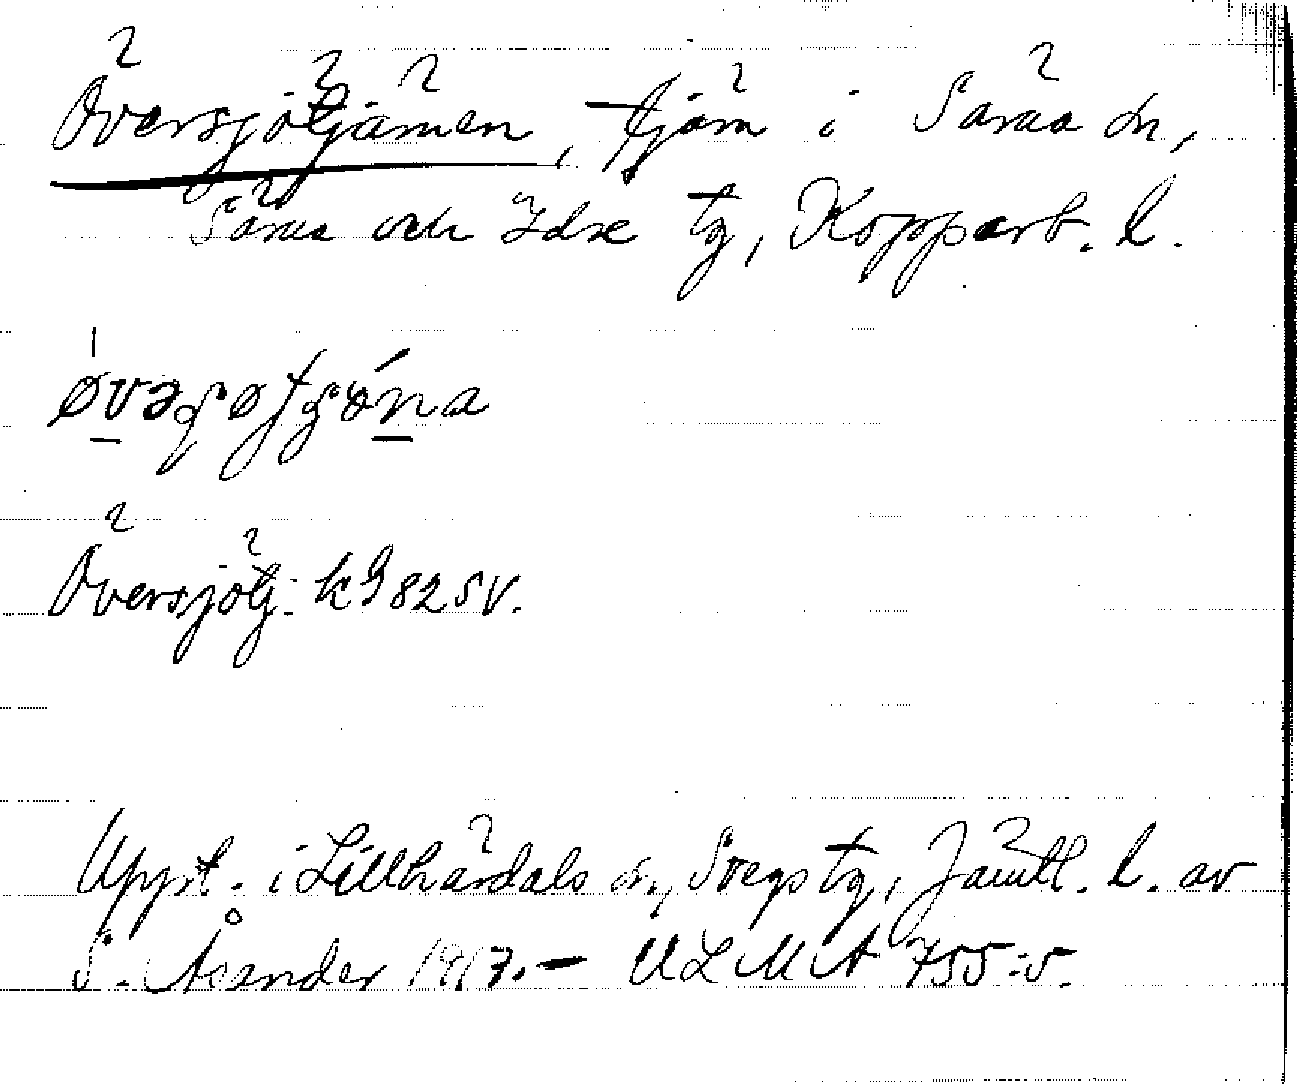 Översjötjärnen, tjärn i Särna sn,
Särna och Idre tg, Kopparb. l.
Översjötj. kg 82 SV.
Uppt. i Lillhärdals sn, Svegs tg, Jämtl. l. av
S. Åsander 1917. – ULMA 755:5.